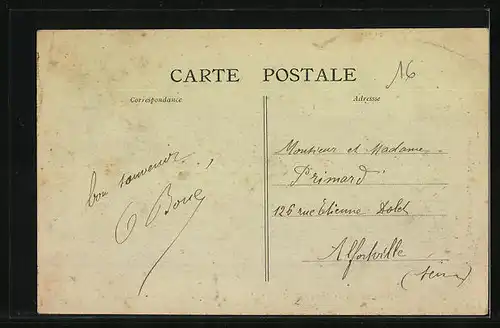 CARTE POSTALE
16
Correspondance
Adresse
bon souvenir
Monsieur et Madame
Primard
126 rue Etienne Dolet
Alfortville
(Seine)